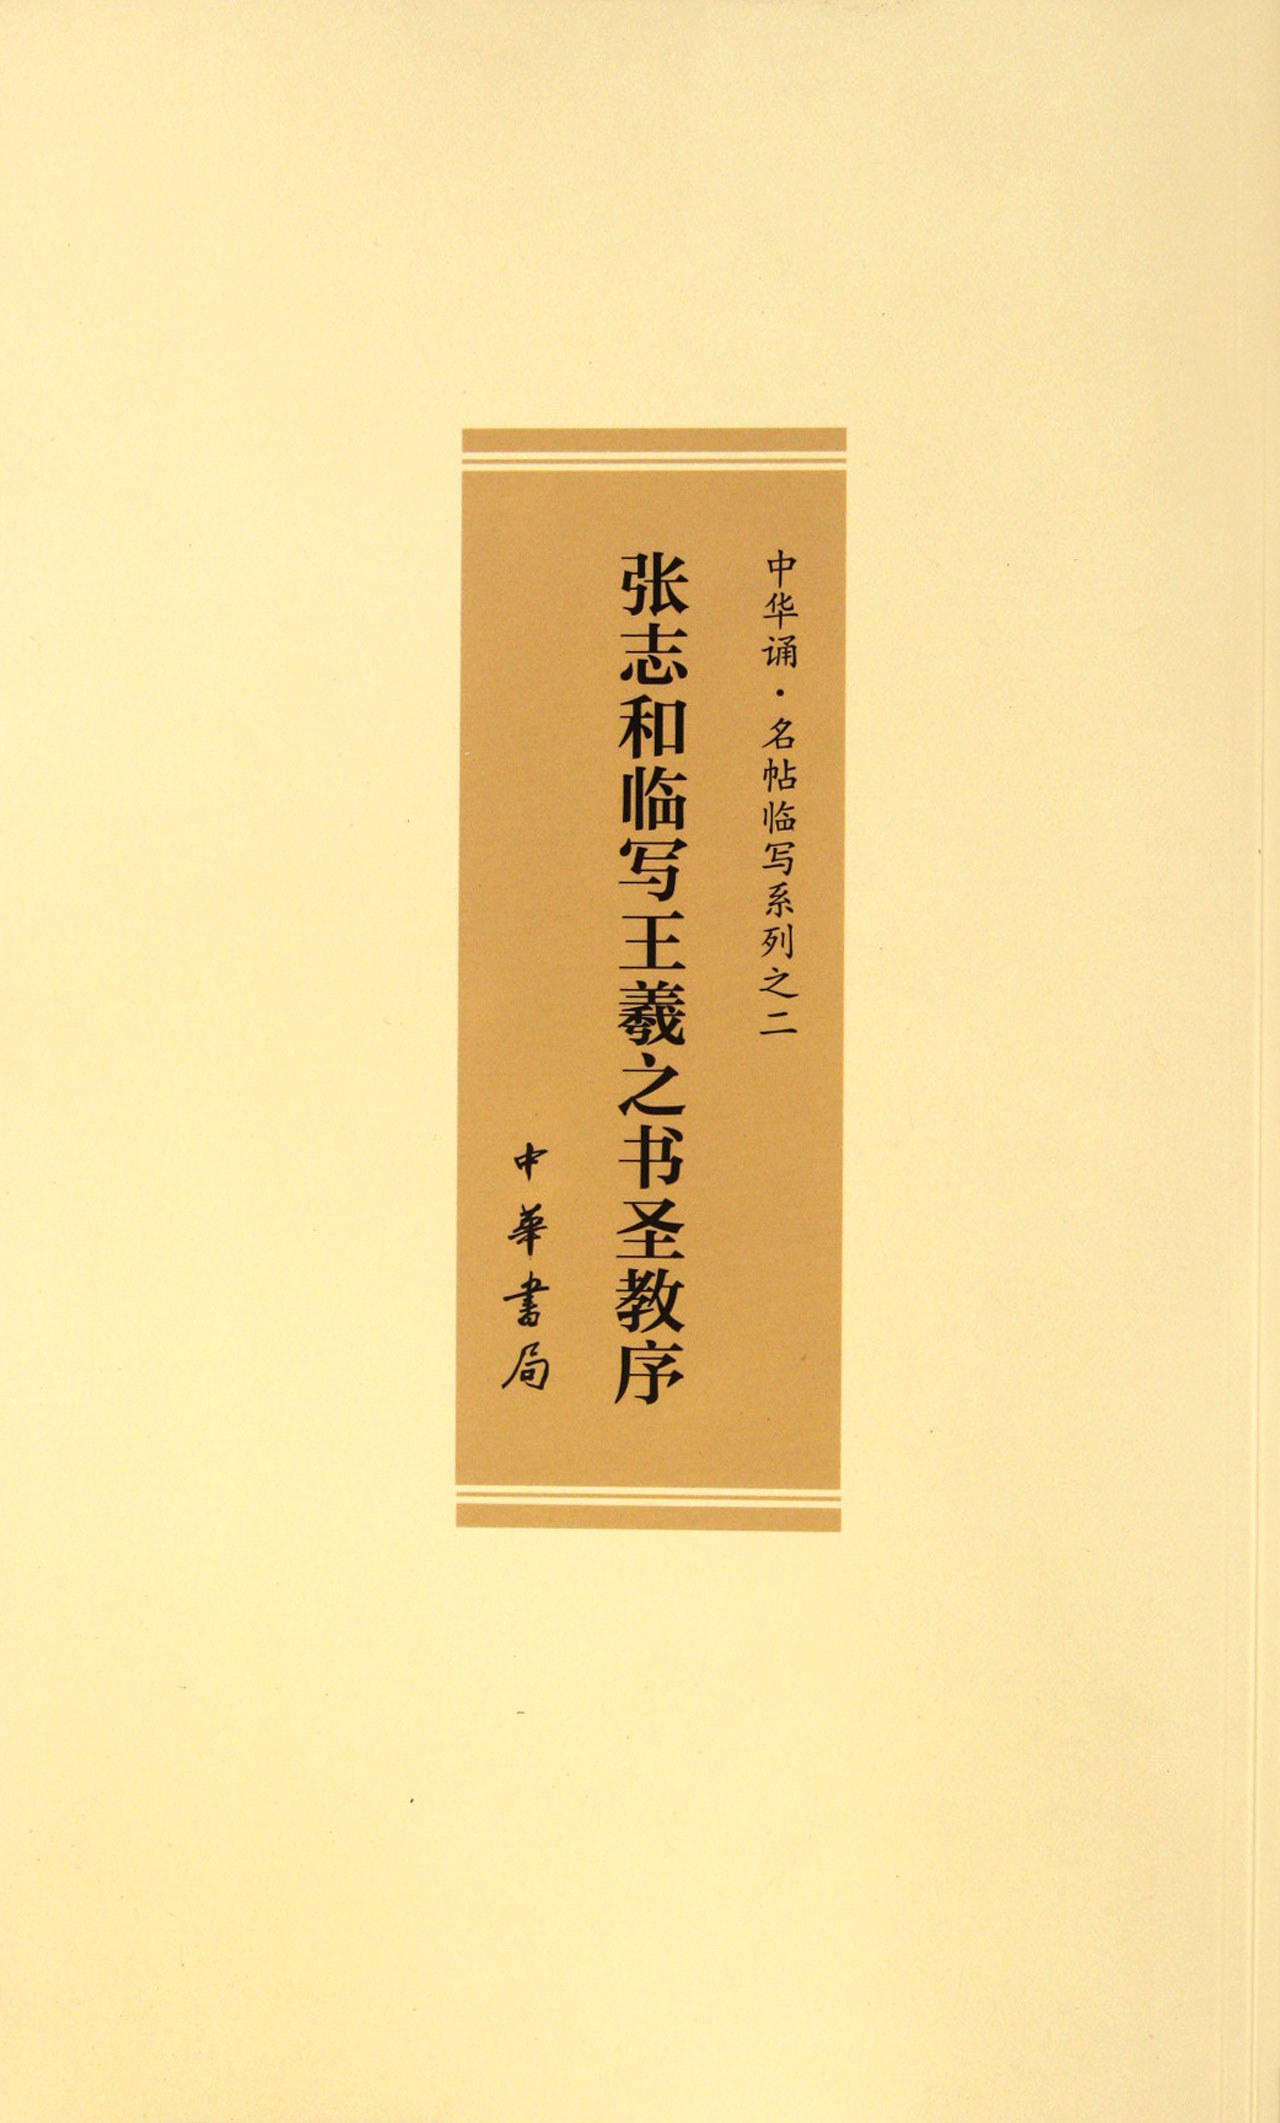 中华诵·名帖临写系列之二
张志和临写王羲之书圣教序
中華書局